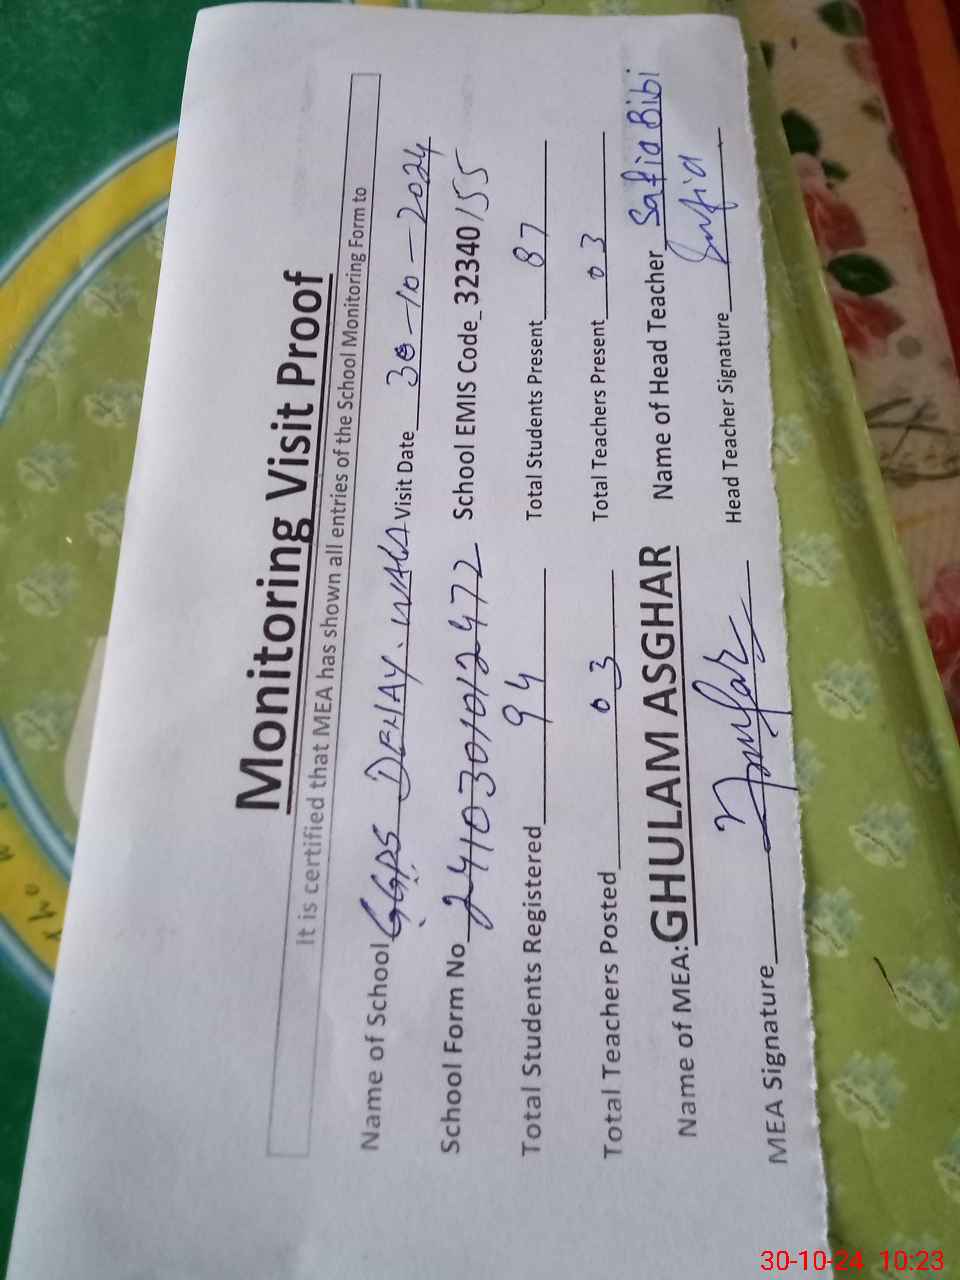 Monitoring Visit Proof
It is certified that MEA has shown all entries of the School Monitoring Form to
Name of School GGPS DEHAY. WALA Visit Date 30-10-2024
School Form No 2410301012472 School EMIS Code 32340155
Total Students Registered 94 Total Students Present 87
Total Teachers Posted 03 Total Teachers Present 03
Name of MEA: GHULAM ASGHAR Name of Head Teacher Safia Bibi
MEA Signature Head Teacher Signature Safia
30-10-24 10:23